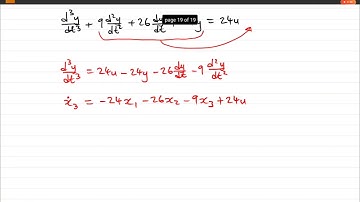 d³y/dt³ + 9 d²y/dt² + 26 dy/dt y = 24u
page 19 of 19
d³y/dt³ = 24u - 24y - 26 dy/dt - 9 d²y/dt²
ẋ₃ = -24x₁ - 26x₂ - 9x₃ + 24u